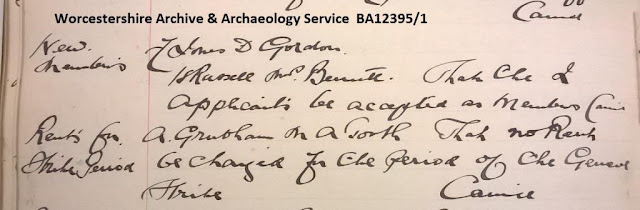 Worcestershire Archive & Archaeology Service BA12395/1
Carried
New Jones D Gordon.
Members Russell Mrs Bennett. That the 2
Applicants be accepted as Members
Rents for A. Grubham That no Rent
Strike Period be charged for the period of the General
Strike Carried